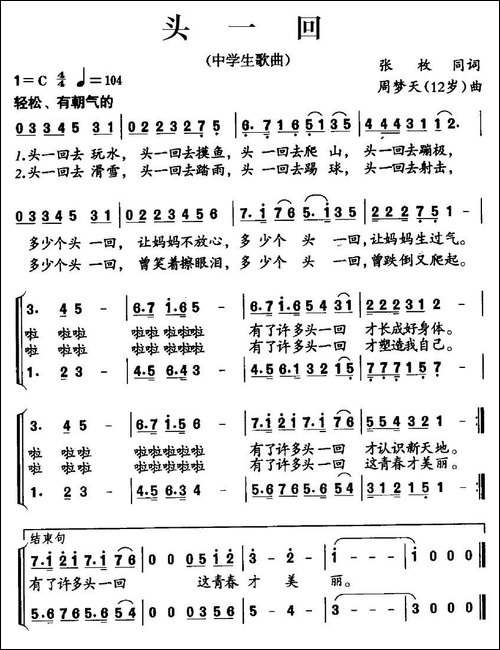 头一回
(中学生歌曲)
1=C 4/4 ♩=104
张枚同词
周梦天(12岁)曲
轻松、有朝气的
0 3 3 4 5 3 1 | 0 2 2 3 4 5 | 6. 7 1 6 5 1 3 5 | 4 4 4 3 1 1 2. |
1.头一回去 玩水, 头一回去摸鱼, 头一回去爬 山, 头一回去蹦极,
2.头一回去 滑雪, 头一回去踏雨, 头一回去踢 球, 头一回去射击,
0 3 3 4 5 3 1 | 0 2 2 3 4 5 6 | 7. 1 7 6 5. 1 3 | 2 2 2 7 5 1 0 |
多少个头 一回, 让妈妈不放心, 多 少个 头 一回,让妈妈生过气。
多少个头 一回, 曾笑着擦眼泪, 多 少个 头 一回,曾跌倒又爬起。
3. 4 5 - | 6. 7 1. 6 5 | 1. 7 6. 1 6 5 4 3 1 | 2 2 2 3 1 2 |
啦 啦啦 啦啦 啦啦啦 有了许多头一回 才长成好身体。
啦 啦啦 啦啦 啦啦啦 有了许多头一回 才塑造我自己。
1. 2 3 - | 4. 5 6. 4 3 | 4. 5 6. 1 3 2 1 5 | 7 7 7 1 5 7 |
3. 4 5 - | 6. 7 1. 6 5 | 7. 1 2 1 7. 1 7 6 | 5 5 4 3 2 1 - |
啦 啦啦 啦啦啦啦啦 有了许多头一回 才认识新天地。
啦 啦啦 啦啦啦啦啦 有了许多头一回 这青春才美丽。
1. 2 3 - | 4. 5 6. 3 4 | 5. 6 7 6 5. 6 5 4 | 3 1 2 1 5 1 - |
结束句
7. 1 2 1 7. 1 7 6 | 0 0 0 5 1 2 | 3 - 2 - | 1 - - - | 1 0 0 0 |
有了许多头一回 这青春 才 美 丽。
5. 6 7 6 5. 6 5 4 | 0 0 0 5 5 6 | 5 - 4 - | 3 - - - | 3 0 0 0 |